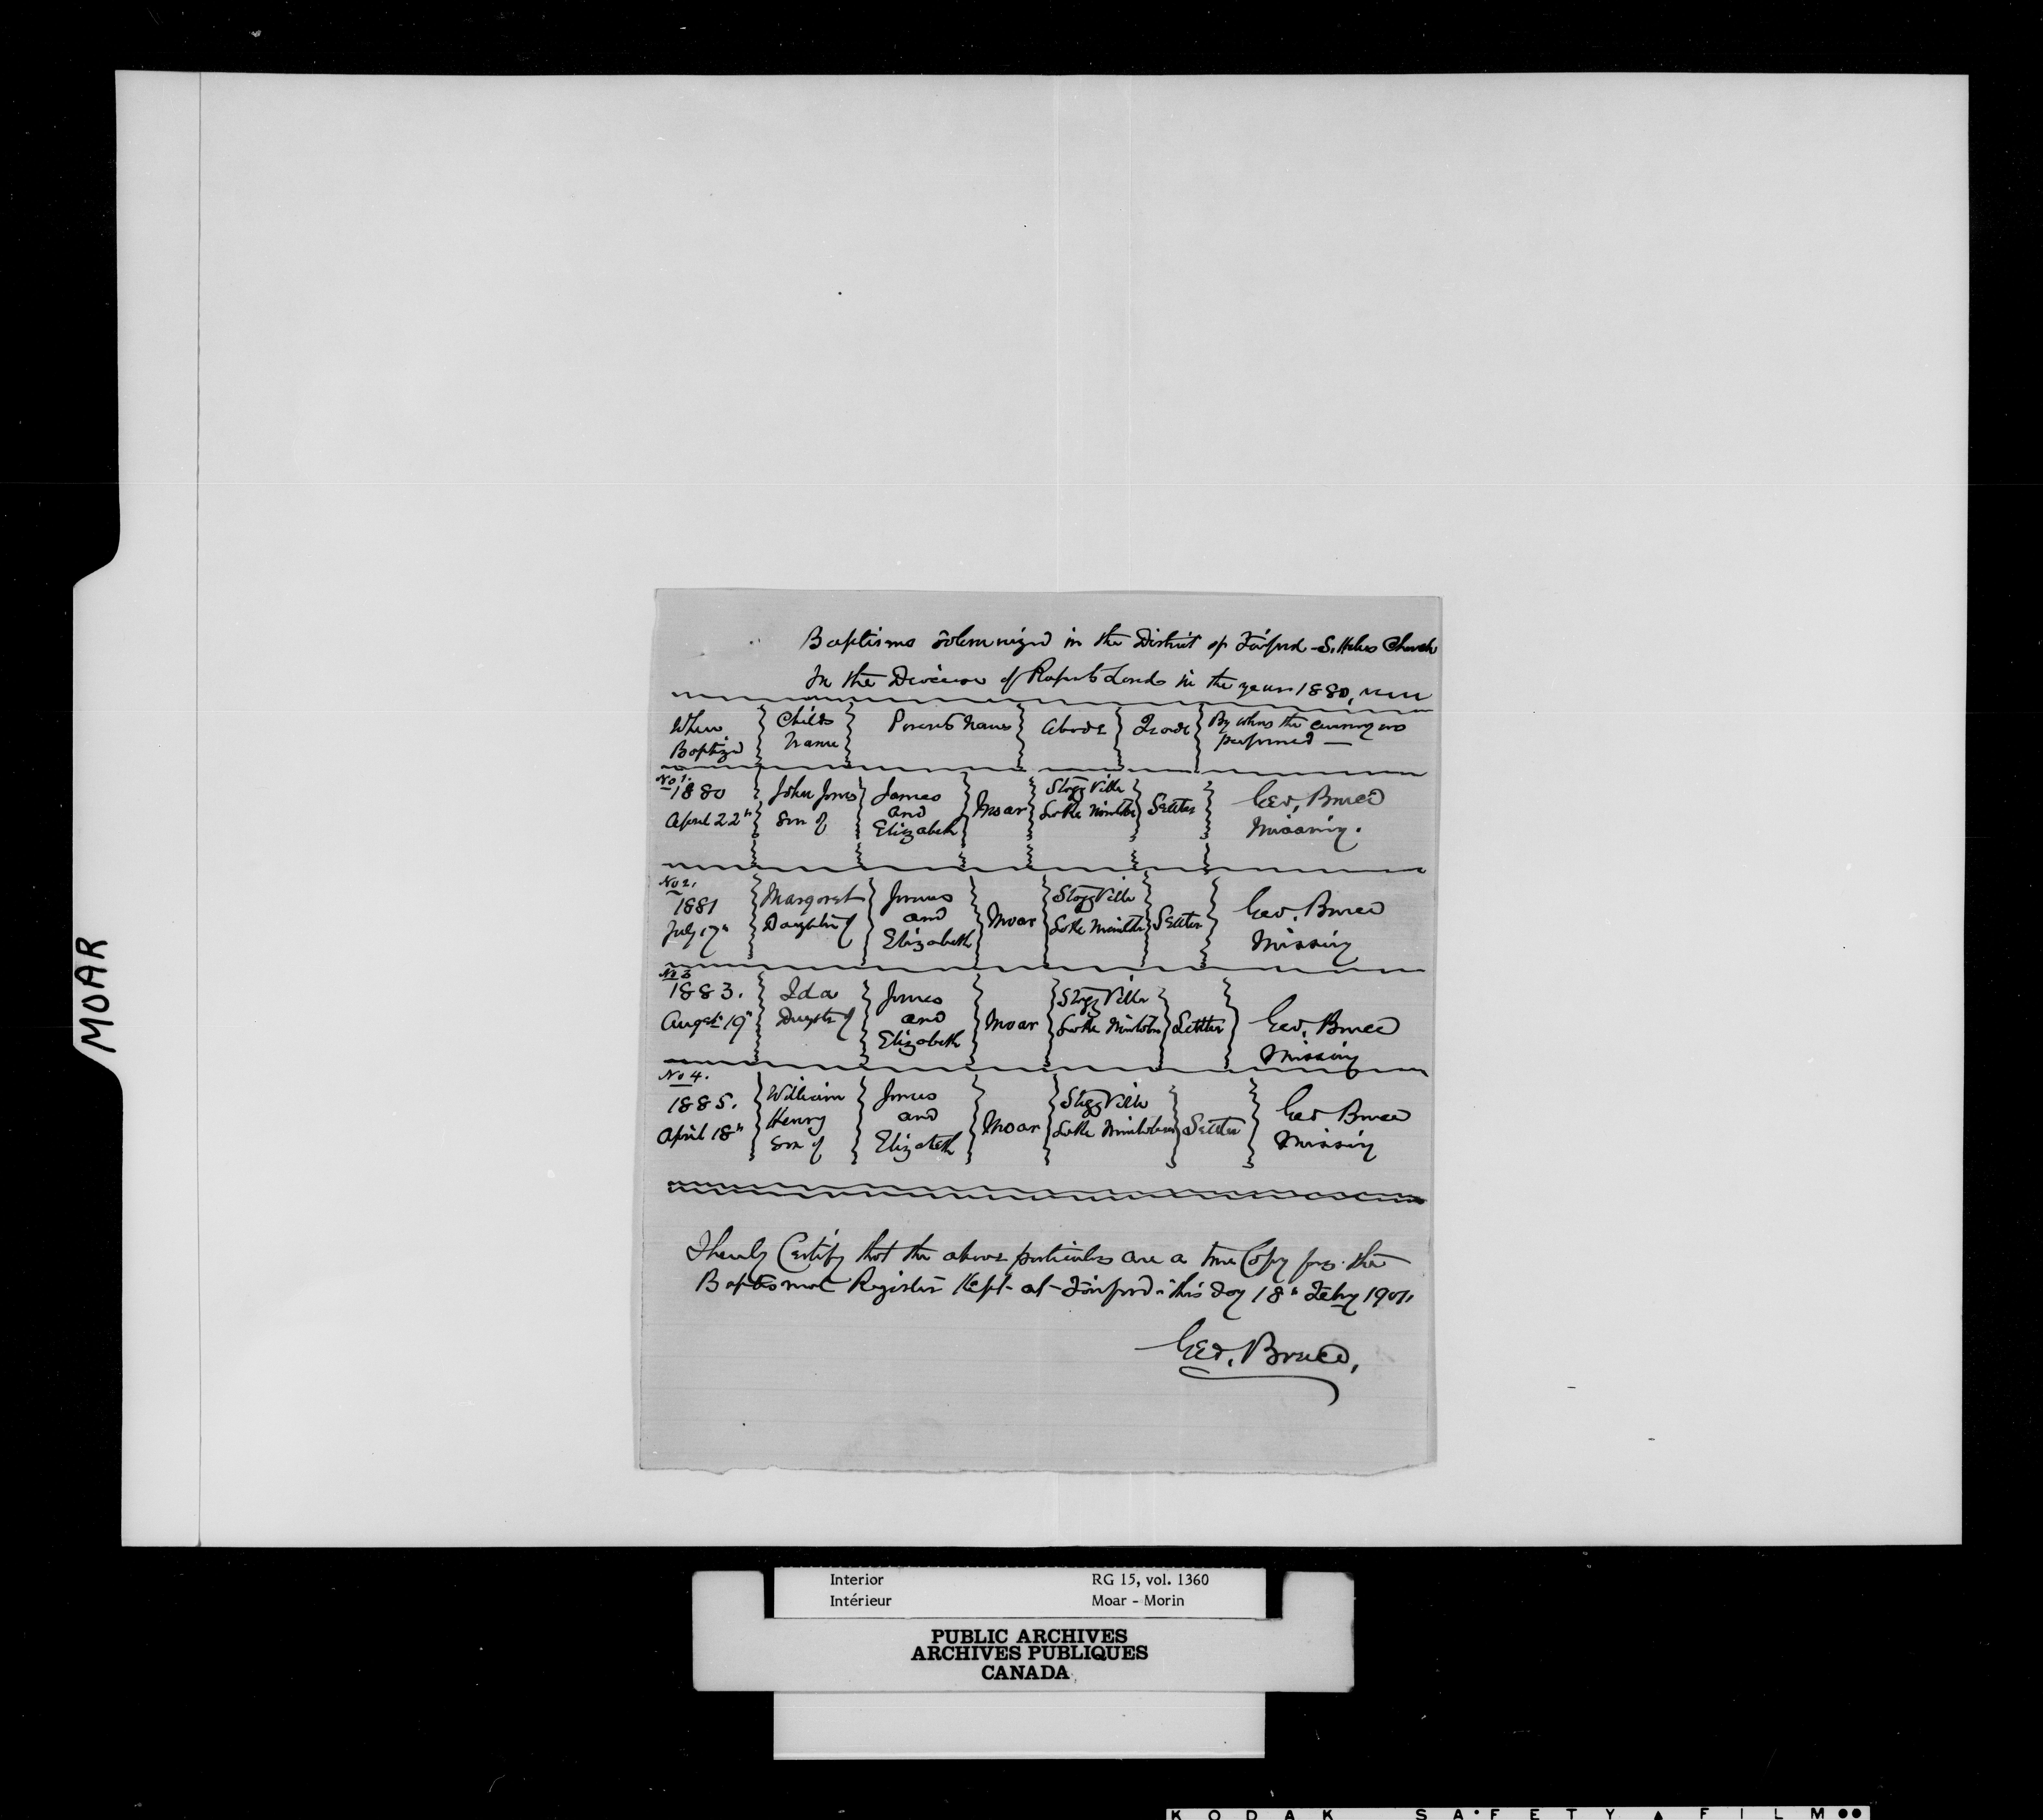 MOAR
Baptisms Solemnized in the District of Fairford S. Helens Church
In the Division of Ruperts Lands in the year 1880,
When Baptizd
Childs Name
Parents Names
Abode
Trade
By whom the ceremony was performed —
No 1.
1880
April 22th
John James
Son of
James
and
Elizabeth
Moar
Stagg Ville
Lake Manitoba
Settler
Geo, Bruce
Missiny.
No 2.
1881
July 17th
Margaret
Daughter of
James
and
Elizabeth
Moar
Stagg Ville
Lake Manitoba
Settler
Geo. Bruce
Missiny
No 3
1883.
Augst 19th
Ida
Daughtr of
James
and
Elizabeth
Moar
Stagg Ville
Lake Manitoba
Settler
Geo. Bruce
Missiny
No 4.
1885.
April 18th
William
Henry
Son of
James
and
Elizabeth
Moar
Stagg Ville
Lake Manitoba
Settler
Geo Bruce
Missiny
I herely Certify that the above particulars are a true Copy from the
Baptismal Register Kept at Fairford this day 18th Febry 1901,
Geo. Bruce,
Interior RG 15, vol. 1360
Intérieur Moar - Morin
PUBLIC ARCHIVES
ARCHIVES PUBLIQUES
CANADA
KODAK SAFETY FILM